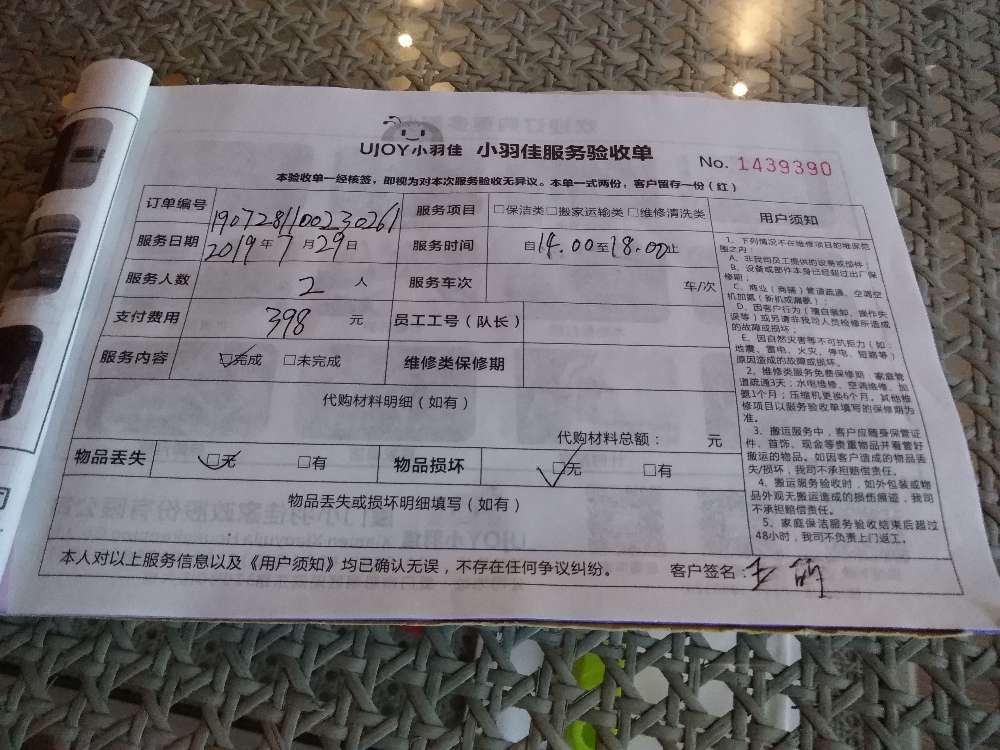 UJOY小羽佳 小羽佳服务验收单 No. 1439390
本验收单一经核签，即视为对本次服务验收无异议。本单一式两份，客户留存一份（红）
订单编号 1907281100230261 服务项目 □保洁类□搬家运输类□维修清洗类
服务日期 2019年7月29日 服务时间 自14.00至18.00止
服务人数 2 人 服务车次 车/次
支付费用 398 元 员工工号（队长）
服务内容 ☑完成 □未完成 维修类保修期
代购材料明细（如有）
代购材料总额： 元
物品丢失 ☑无 □有 物品损坏 ☑无 □有
物品丢失或损坏明细填写（如有）
本人对以上服务信息以及《用户须知》均已确认无误，不存在任何争议纠纷。 客户签名：王
用户须知
1、下列情况不在维修项目的维保范
围之内：
A、非我司员工提供的设备或部件；
B、设备或部件本身已经超过出厂保
修期；
C、商业（商铺）管道疏通、空调空
机加氨（新机或漏氨）；
D、因客户行为（擅自装卸、操作失
误等）或另请非我司人员检修所造成
的故障或损坏；
E、因自然灾害等不可抗拒力（如：
地震、雷电、火灾、停电、短路等）
原因造成的故障或损坏。
2、维修类服务免费保修期：家庭管
道疏通3天；水电维修、空调维修、加
氨1个月；压缩机更换6个月。其他维
修项目以服务验收单填写的保修期为
准。
3、搬运服务中，客户应随身保管证
件、首饰、现金等贵重物品并看管好
搬运的物品。如因客户造成的物品丢
失/损坏，我司不承担赔偿责任。
4、搬运服务验收时，如外包装或物
品外观无搬运造成的损伤痕迹，我司
不承担赔偿责任。
5、家庭保洁服务验收结束后超过
48小时，我司不负责上门返工。